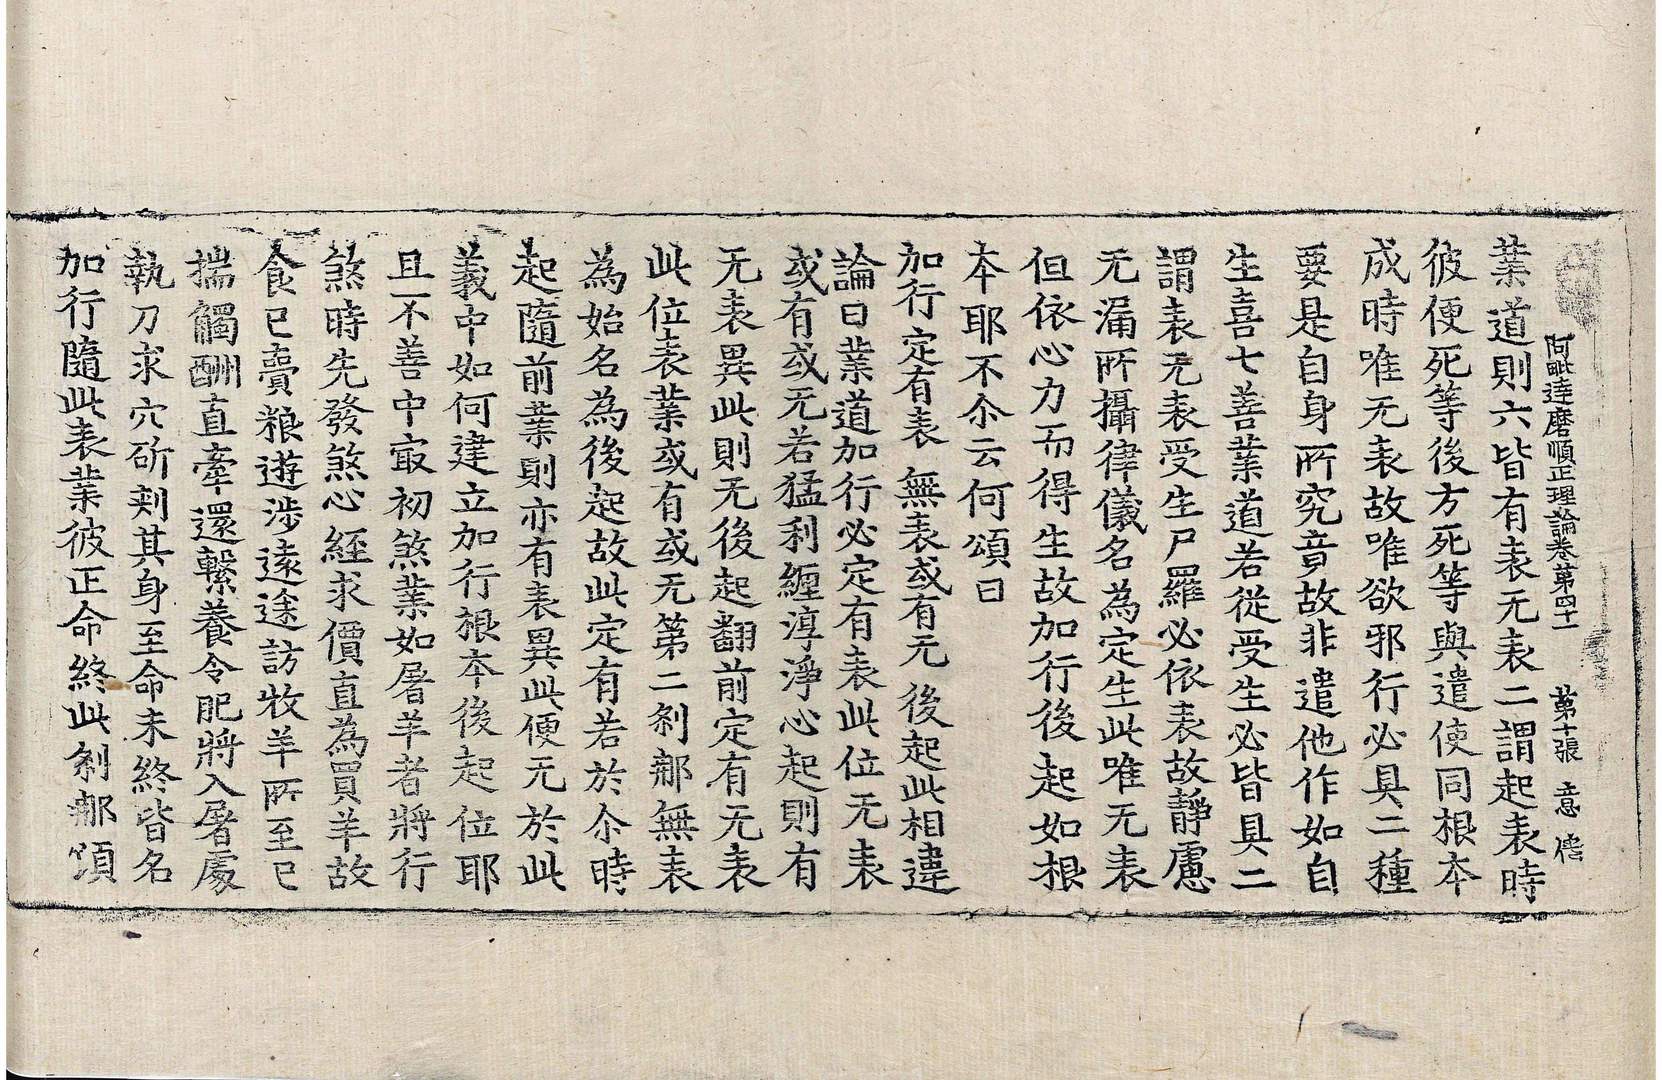 阿毗達磨順正理論卷第四十一 第十張 意 僊
業道則六皆有表无表二謂起表時
彼便死等後方死等與遣使同根本
成時唯无表故唯欲邪行必具二種
要是自身所究竟故非遣他作如自
生喜七善業道若從受生必皆具二
謂表无表受生尸羅必依表故靜慮
无漏所攝律儀名為定生此唯无表
但依心力而得生故加行後起如根
本耶不尒云何頌曰
加行定有表 無表或有无 後起此相違
論曰業道加行必定有表此位无表
或有或无若猛利纏淳淨心起則有
无表異此則无後起翻前定有无表
此位表業或有或无第二刹那無表
為始名為後起故此定有若於尒時
起隨前業則亦有表異此便无於此
義中如何建立加行根本後起位耶
且不善中冣初煞業如屠羊者將行
煞時先發煞心經求價直為買羊故
食已賣粮遊涉遠途訪牧羊所至已
揣觸酬直牽還繫養令肥將入屠處
執刀求穴斫刾其身至命未終皆名
加行隨此表業彼正命終此刹那頃